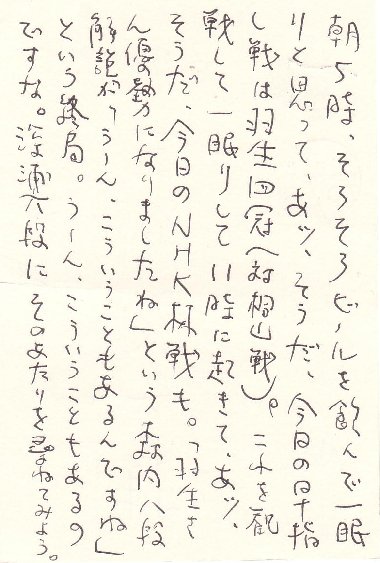 朝5時、そろそろビールを飲んで一眠
りと思って、あッ、そうだ、今日の日本指
し戦は羽生四冠(対桐山戦)。これを観
戦して一眠りして11時に起きて、あッ、
そうだ、今日のNHK杯戦も。「羽生さ
ん優勢になりましたね」という森内八段
解説がうーん、こういうこともあるんですね」
という終局。うーん、こういうこともあるの
ですな。深浦六段にそのあたりを尋ねてみよう。